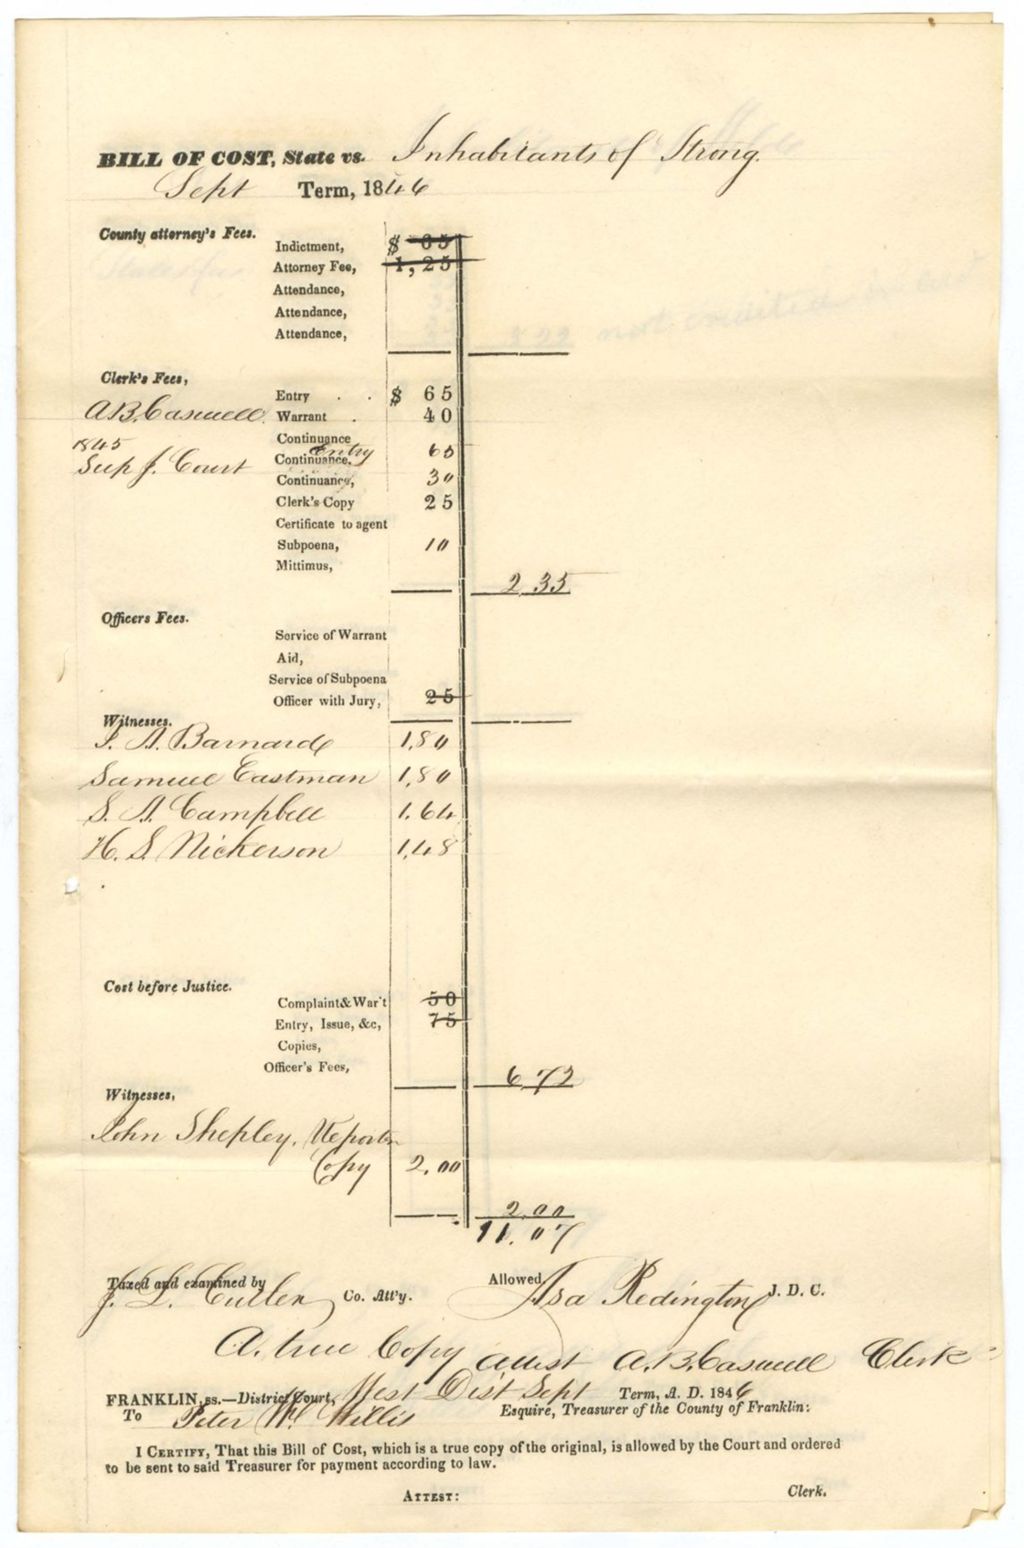 BILL OF COST, State vs. Inhabitants of Strong.
Sept Term, 1846
County attorney's Fees.
Indictment, $ 65
Attorney Fee, 1,25
Attendance,
Attendance,
Attendance,
not credited
Clerk's Fees,
Entry . . $ 65
A.B. Caswell. Warrant . 40
Continuance
1845 Entry
Sup J. Court Continuance. 65
Continuance, 30
Clerk's Copy 25
Certificate to agent
Subpoena, 10
Mittimus,
2 35
Officers Fees.
Service of Warrant
Aid,
Service of Subpoena
Officer with Jury, 25
Witnesses.
A. Barnard 1,80
Samuel Eastman 1,80
S. A. Campbell 1.64
H. S. Nickerson 1,48
Cost before Justice.
Complaint & War't 50
Entry, Issue, &c, 75
Copies,
Officer's Fees,
6 72
Witnesses,
John Shepley, Reporter
Copy 2.00
2 00
11.07
Taxed and examined by
J. L. Cutler Co. Att'y.
Allowed, Asa Redington J. D. C.
A. true Copy Attest A.B. Caswell Clerk
FRANKLIN, ss.—District Court, West Dist Sept Term, A. D. 1846
To Peter W. Willis Esquire, Treasurer of the County of Franklin:
I CERTIFY, That this Bill of Cost, which is a true copy of the original, is allowed by the Court and ordered
to be sent to said Treasurer for payment according to law.
ATTEST: Clerk.